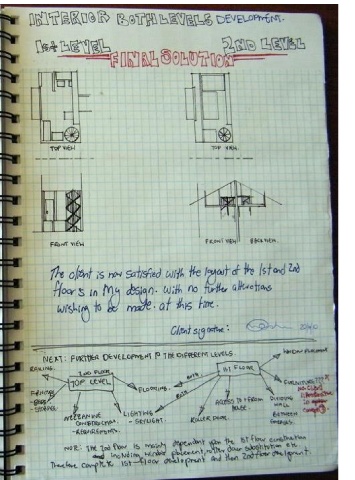 INTERIOR BOTH LEVELS DEVELOPMENT.
1st LEVEL 2ND LEVEL
FINAL SOLUTION
TOP VIEW TOP VIEW
FRONT VIEW FRONT VIEW BACK VIEW
The client is now satisfied with the layout of the 1st and 2nd
floors in My design. With no further alterations
wishing to be made at this time.
Client signature:
NEXT: FURTHER DEVELOPMENT IN THE DIFFERENT LEVELS.
RAILING. 2ND FLOOR 1ST FLOOR WINDOW PLACEMENT
TOP LEVEL FLOORING. FURNITURE
MECHANISM LIGHTING ACCESS TO + FROM DIVIDING
CONSTRUCTION - SKYLIGHT. WALL
REQUIREMENTS. ROLLER DOOR. BETWEEN
NOTE: The 2nd floor is mainly dependant upon the 1st floor construction
and including window placement, roller door substitution etc.
Therefore complete 1st floor development and then 2nd floor development.